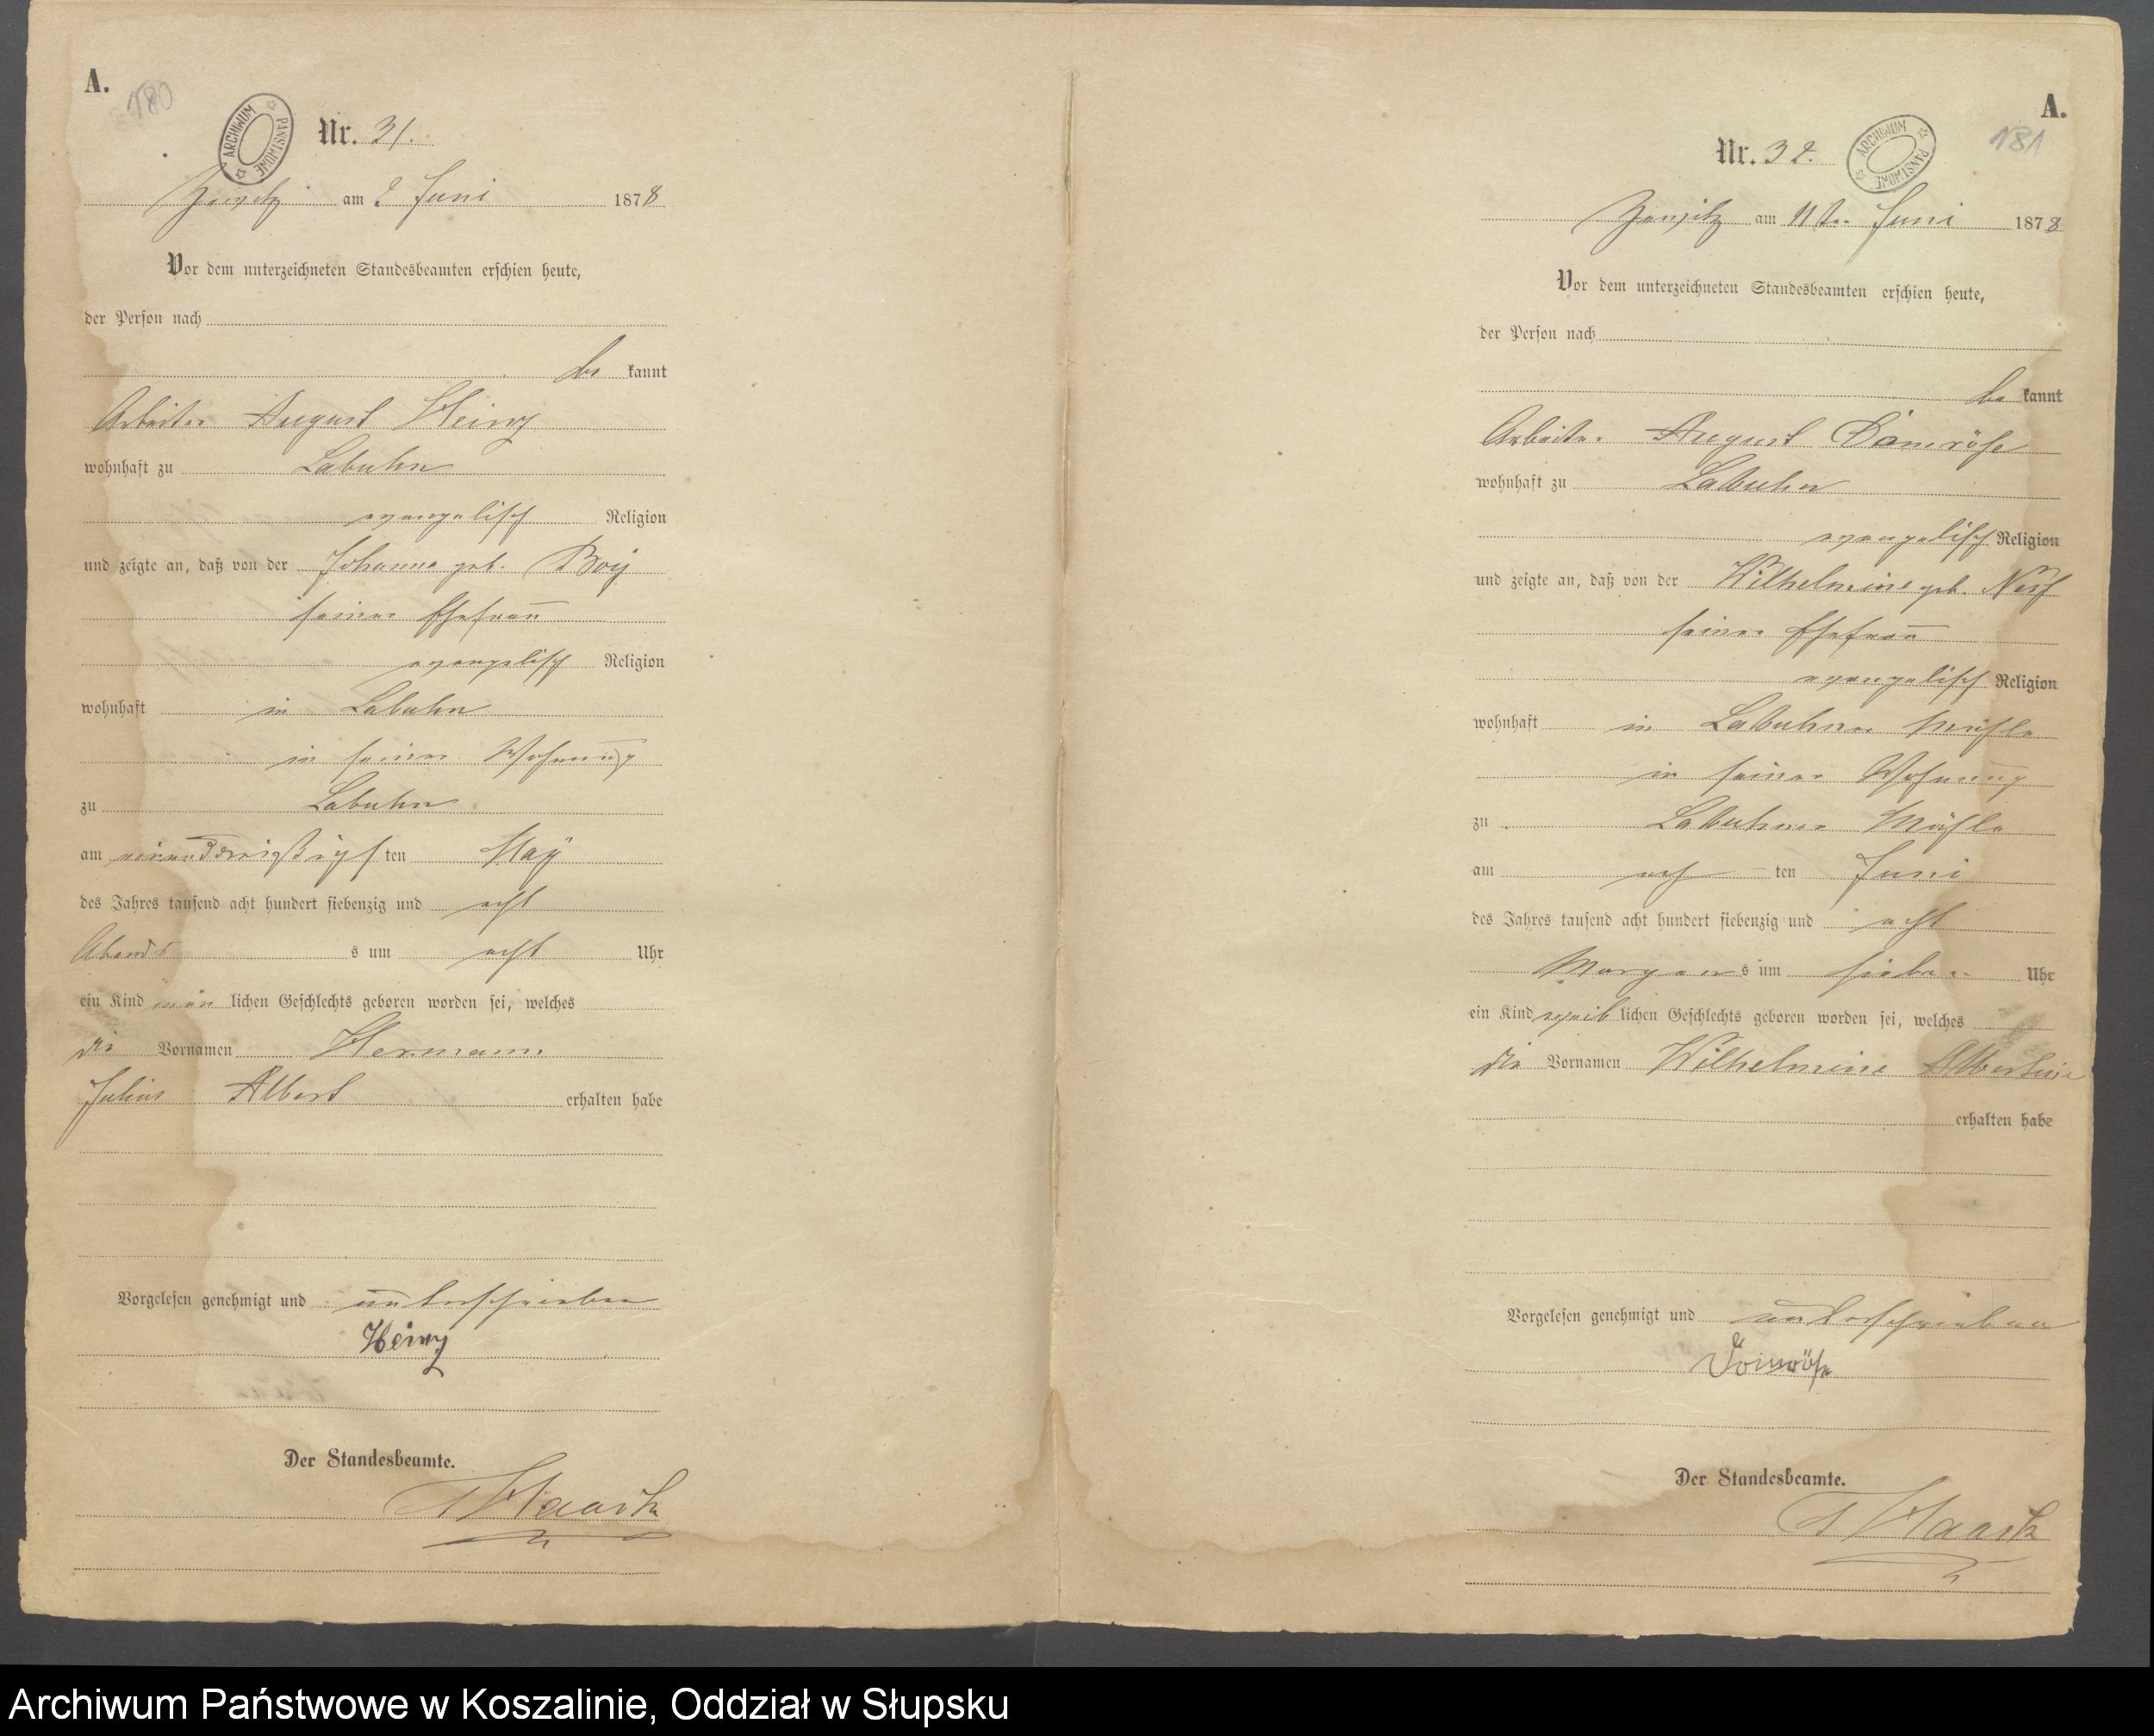 A.
180
ARCHIWUM PAŃSTWOWE
Nr. 31.
am 2 Juni 1878
Vor dem unterzeichneten Standesbeamten erschien heute,
der Person nach
be kannt
Arbeiter August Heinz
wohnhaft zu Labuhn
evangelisch Religion
und zeigte an, daß von der Johanne geb.
seiner Ehefrau
evangelisch Religion
wohnhaft in Labuhn
in seiner Wohnung
zu Labuhn
am einunddreißigsten May
des Jahres tausend acht hundert siebenzig und acht
Abends s um acht Uhr
ein Kind män lichen Geschlechts geboren worden sei, welches
die Vornamen Hermann
Julius Albert erhalten habe
Vorgelesen genehmigt und unterschrieben
Heinz
Der Standesbeamte.
Haack
A.
181
Nr. 32.
ARCHIWUM PAŃSTWOWE
am 11ten Juni 1878
Vor dem unterzeichneten Standesbeamten erschien heute,
der Person nach
be kannt
Arbeiter August Damröse
wohnhaft zu Labuhn
evangelisch Religion
und zeigte an, daß von der Wilhelmine geb.
seiner Ehefrau
evangelisch Religion
wohnhaft in Labuhner Mühle
in seiner Wohnung
zu Labuhner Mühle
am ach ten Juni
des Jahres tausend acht hundert siebenzig und acht
Morgen s um sieben Uhr
ein Kind weib lichen Geschlechts geboren worden sei, welches
die Vornamen Wilhelmine Albertine
erhalten habe
Vorgelesen genehmigt und unterschrieben
Damröse
Der Standesbeamte.
Haack
Archiwum Państwowe w Koszalinie, Oddział w Słupsku